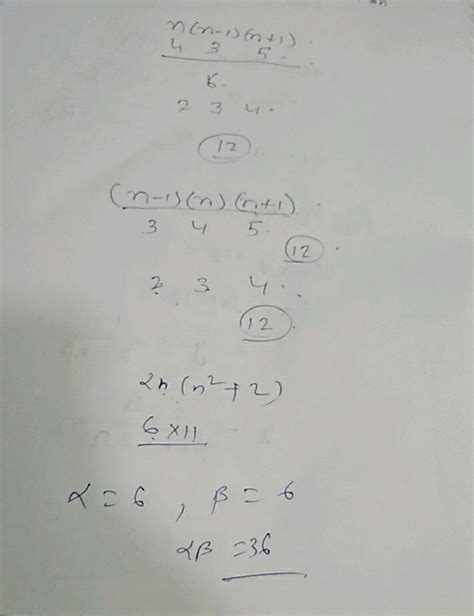 n(n-1)(n+1).
4 3 5.
6.
2 3 4.
12
(n-1)(n)(n+1).
3 4 5.
12.
2 3 4.
12.
2n(n²+2)
6×11
α=6, β=6
αβ=36